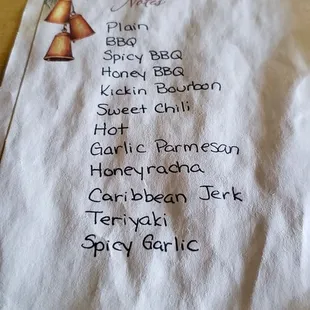 Notes
Plain
BBQ
Spicy BBQ
Honey BBQ
Kickin Bourbon
Sweet Chili
Hot
Garlic Parmesan
Honeyracha
Caribbean Jerk
Teriyaki
Spicy Garlic